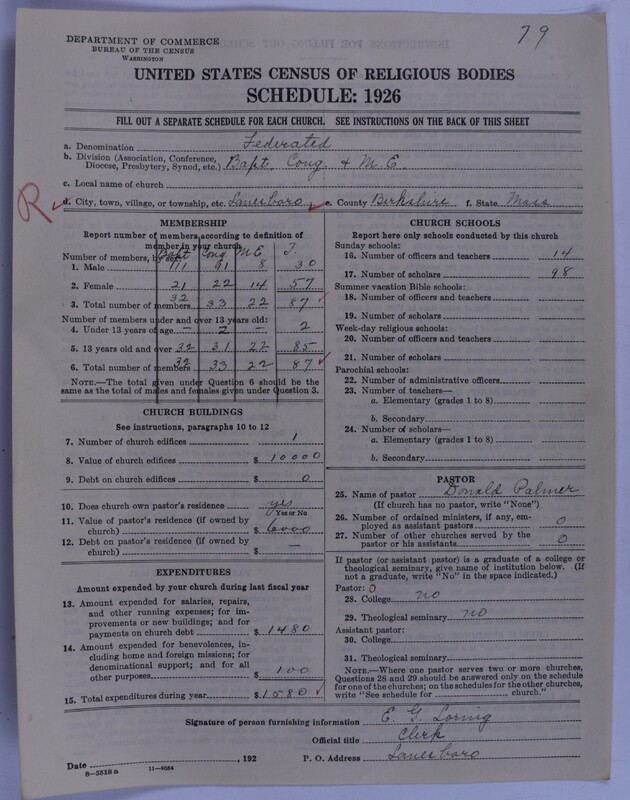 79
DEPARTMENT OF COMMERCE
BUREAU OF THE CENSUS
WASHINGTON
UNITED STATES CENSUS OF RELIGIOUS BODIES
SCHEDULE: 1926
FILL OUT A SEPARATE SCHEDULE FOR EACH CHURCH. SEE INSTRUCTIONS ON THE BACK OF THIS SHEET
a. Denomination Federated
b. Division (Association, Conference, Diocese, Presbytery, Synod, etc.) Bapt, Cong & M.E
c. Local name of church
R
d. City, town, village, or township, etc. Lanesboro e. County Berkshire f. State Mass
MEMBERSHIP
Report number of members according to definition of member in your church
Number of members, by sex: Bapt Cong M.E T.
1. Male 11 8 30
2. Female 21 22 14 57
3. Total number of members 32 33 22 87
Number of members under and over 13 years old:
4. Under 13 years of age — 2 — 2
5. 13 years old and over 32 31 22 85
6. Total number of members 32 33 22 87
NOTE.—The total given under Question 6 should be the same as the total of males and females given under Question 3.
CHURCH BUILDINGS
See instructions, paragraphs 10 to 12
7. Number of church edifices 1
8. Value of church edifices $ 10000
9. Debt on church edifices $ 0
10. Does church own pastor's residence? yes
Yes or No
11. Value of pastor's residence (if owned by church) $ 6000
12. Debt on pastor's residence (if owned by church) $ —
EXPENDITURES
Amount expended by your church during last fiscal year
13. Amount expended for salaries, repairs, and other running expenses; for improvements or new buildings; and for payments on church debt $ 1480
14. Amount expended for benevolences, including home and foreign missions; for denominational support; and for all other purposes $ 100
15. Total expenditures during year $ 1580
CHURCH SCHOOLS
Report here only schools conducted by this church
Sunday schools:
16. Number of officers and teachers 14
17. Number of scholars 98
Summer vacation Bible schools:
18. Number of officers and teachers
19. Number of scholars
Week-day religious schools:
20. Number of officers and teachers
21. Number of scholars
Parochial schools:
22. Number of administrative officers
23. Number of teachers—
a. Elementary (grades 1 to 8)
b. Secondary
24. Number of scholars—
a. Elementary (grades 1 to 8)
b. Secondary
PASTOR
25. Name of pastor Donald Palmer
(If church has no pastor, write "None")
26. Number of ordained ministers, if any, employed as assistant pastors 0
27. Number of other churches served by the pastor or his assistants 0
If pastor (or assistant pastor) is a graduate of a college or theological seminary, give name of institution below. (If not a graduate, write "No" in the space indicated.)
Pastor: 0
28. College no
29. Theological seminary no
Assistant pastor:
30. College
31. Theological seminary
NOTE.—Where one pastor serves two or more churches, Questions 28 and 29 should be answered only on the schedule for one of the churches; on the schedules for the other churches, write "See schedule for church."
Signature of person furnishing information E. G. Loring
Official title Clerk
Date , 192 P. O. Address Lanesboro
8-5518a 11-9654